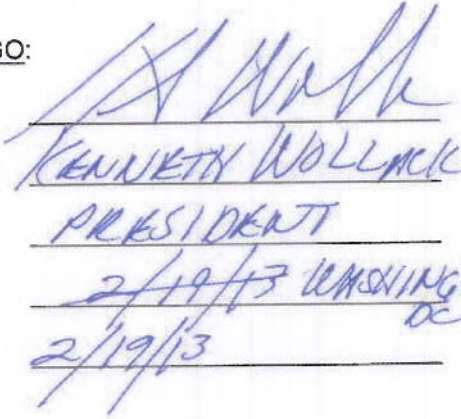 GO:
KENNETH WOLLACK
PRESIDENT
2/19/13 WASHING
DC
2/19/13